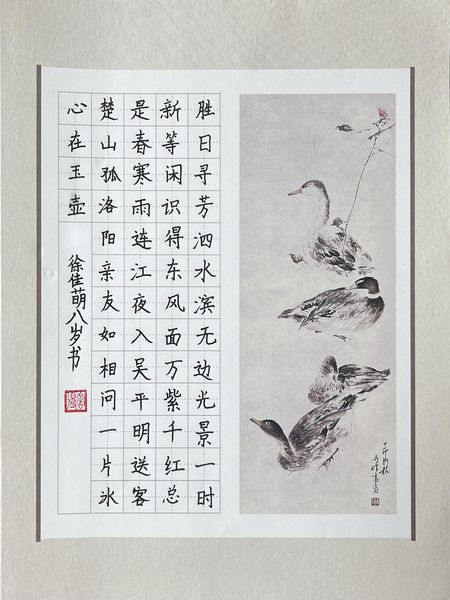 胜日寻芳泗水滨无边光景一时
新等闲识得东风面万紫千红总
是春寒雨连江夜入吴平明送客
楚山孤洛阳亲友如相问一片冰
心在玉壶
徐佳萌八岁书